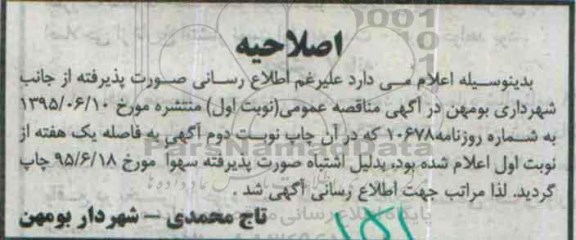 اصلاحیه
بدینوسیله اعلام می دارد علیرغم اطلاع رسانی صورت پذیرفته از جانب
شهرداری بومهن در آگهی مناقصه عمومی(نوبت اول) منتشره مورخ ۱۳۹۵/۰۶/۱۰
به شماره روزنامه۱۰۶۷۸ که در آن چاپ نوبت دوم آگهی به فاصله یک هفته از
نوبت اول اعلام شده بود، بدلیل اشتباه صورت پذیرفته سهوا مورخ ۹۵/۶/۱۸ چاپ
گردید. لذا مراتب جهت اطلاع رسانی آگهی شد .
تاج محمدی – شهردار بومهن
ParsNamadData